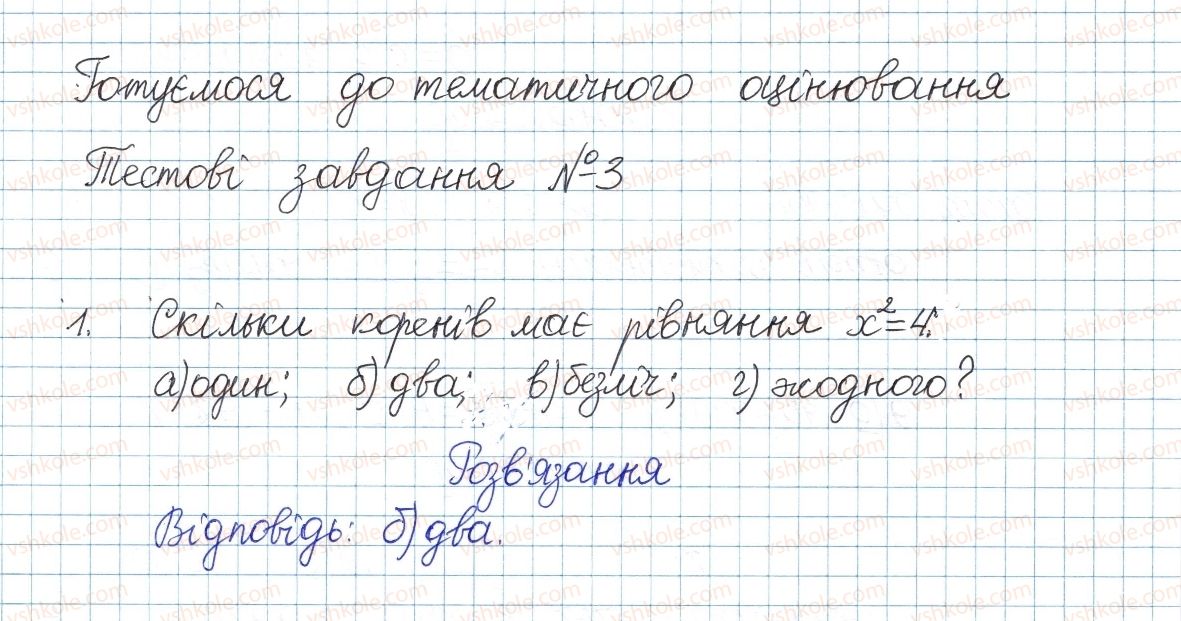 Готуємося до тематичного оцінювання
Тестові завдання №3
1. Скільки коренів має рівняння x²=4:
а) один; б) два; в) безліч; г) жодного?
Розв'язання
Відповідь: б) два.